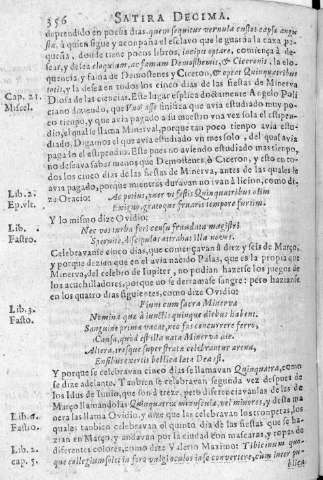 356 SATIRA DECIMA.
deprendido en poesia dias, quem sequitur vernula custos capsæ angu-
stæ, à quien sigue y acompaña el esclavo que le guarda la caxa pe-
queña, donde tiene pocos libros, incipit optare, comiença à de-
sear, y desea eloquium, ac famam Demosthenis, & Ciceronis, la elo-
quencia, y fama de Demostenes y Ciceron, & optat Quinquatribus
totis, y la desea en todos los cinco dias de las fiestas de Minerva
Cap. 21. Diosa de las ciencias. Este lugar explica doctamente Angelo Poli
Miscel. ciano diziendo, que Uno asse sinifica que avia estudiado muy po-
co tiempo, y que avia pagado a su maestro una vez sola el estipen-
dio, el qual se llama Minerval, porque tan poco tiempo avia estu-
diado. Digamos el que avia estudiado un mes solo, del qual avia
pagado el estipendio. Este pues no aviendo estudiado mas tiempo,
no deseava saber menos que Demostenes, ò Ciceron, y esto en to-
dos los cinco dias de las fiestas de Minerva, antes de las quales le
avia pagado, porque mientras duravan no ivan à licion, como di-
Lib. 2. ze Oracio: Ac potius, puer ut festis Quinquatribus olim
Ep. vlt. Exiguo, gratoque fruaris tempore furtim.
Y lo mismo dize Ovidio:
Lib. Nec vos turba feri censu fraudata magistri
Fastro. Spernite, discipulas attrahat illa novas.
Celebravanse cinco dias, que començavan à diez y seis de Março,
y porque dezian que en el avia nacido Palas, que es la propia que
Minerva, del celebro de Iupiter, no podian hazerse los juegos de
los acuchilladores, porque no se derramase sangre: pero hazianse
en los quatro dias siguientes, como dize Ovidio:
Fiunt cum sacra Minerva
Lib. 3. Nomina que à iunctis quinque diebus habent.
Fasto. Sanguine prima vacat, nec fas concurrere ferro,
Causa, quòd est illa nata Minerva die.
Altera, tresque super strata celebrantur arena,
Ensibus exertis bellica læta Dea est.
Y porque se celebravan cinco dias se llamavan Quinquatra, como
se dize adelante. Tambien se celebravan segunda vez despues de
los Idus de Iunio, que son à treze, pero diferenciavanlas de las de
Março llamandolas Quinquatriæ minusculæ, vel minores, y desta ma
Lib. 6. nera las llama Ovidio, y dize que las celebravan los trompetas, los
Fastro. quales tambien celebravan el quinto dia de las fiestas que se ha-
zian en Março, y andavan por la ciudad con mascaras, y ropas de
Lib. 2. diferentes colores, como dize Valerio Maximo: Tibicinum quo-
cap. 5. que collegium solet in foro vulgi oculos in se convertere, cum inter pu-
blica